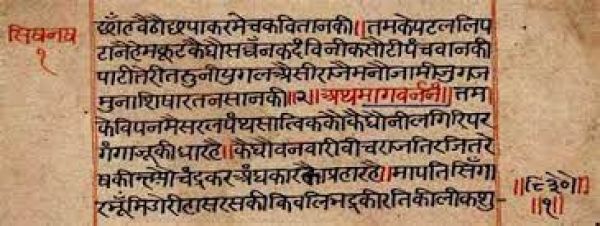 सिषनष
१
छाँहवैठोछपाकरमेचकवितानकी॥तमकेपटललिप
टानेहेमकूटकैधौसघनकदंविनीकसोटीपंचवानकी
पाटीतेरीतरुनीयुगलअैसीराजैमनौजामीजुगज
मुनाशिषारतनसानकी॥२॥अथमागवर्ननं॥तम
केविपनमैसरलपंथसात्विककोकैधौनीलगिरिपर
गंगाजूकीधारहै॥कैधौवनवारीवीचराजतिरजितरे
चंद्रकरअंधकारकोप्रहारहै॥मापतिसिँगा
रभूँमिगरीहासरसकीकिवलिभद्रकीरतिकीलीकशु
॥१॥